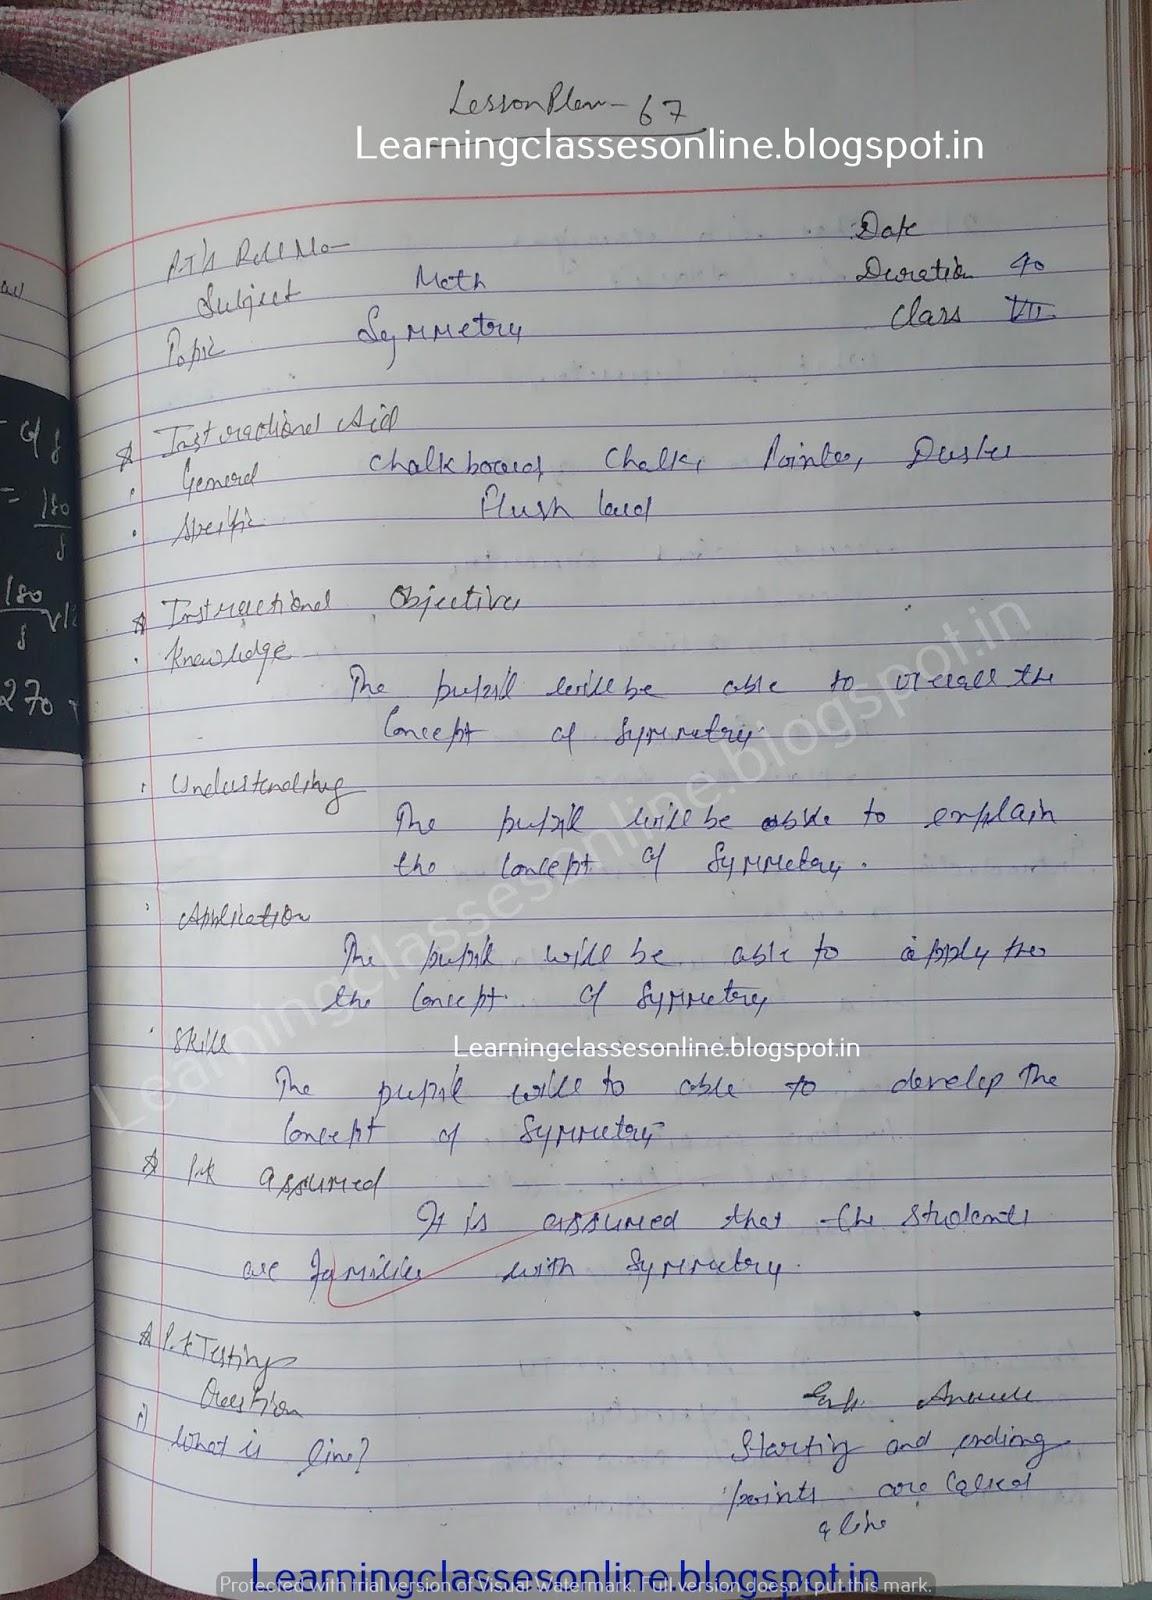 Lesson Plan - 67
Learningclassesonline.blogspot.in
P.T's Roll No - Date
Subject Math Duration 40
Topic Symmetry Class VII
Instructional Aid
General Chalkboard, Chalk, Pointer, Duster
Specific Flush
Instructional Objective
Knowledge
The pupil will be able to recall the
Concept of Symmetry.
Understanding
The pupil will be able to explain
the Concept of Symmetry.
Application
The pupil will be able to apply the
the Concept of Symmetry
Skills
Learningclassesonline.blogspot.in
The pupil will to able to develop the
Concept of Symmetry
P.k assumed
It is assumed that the students
are familiar with Symmetry.
P.k Testing
Question Answer
i) What is line? Starting and ending
points are called
a line
of 8
= 180
8
180
8
270
Learningclassesonline.blogspot.in
Learningclassesonline.blogspot.in
Protected with trial version of Visual Watermark. Full version doesn't put this mark.